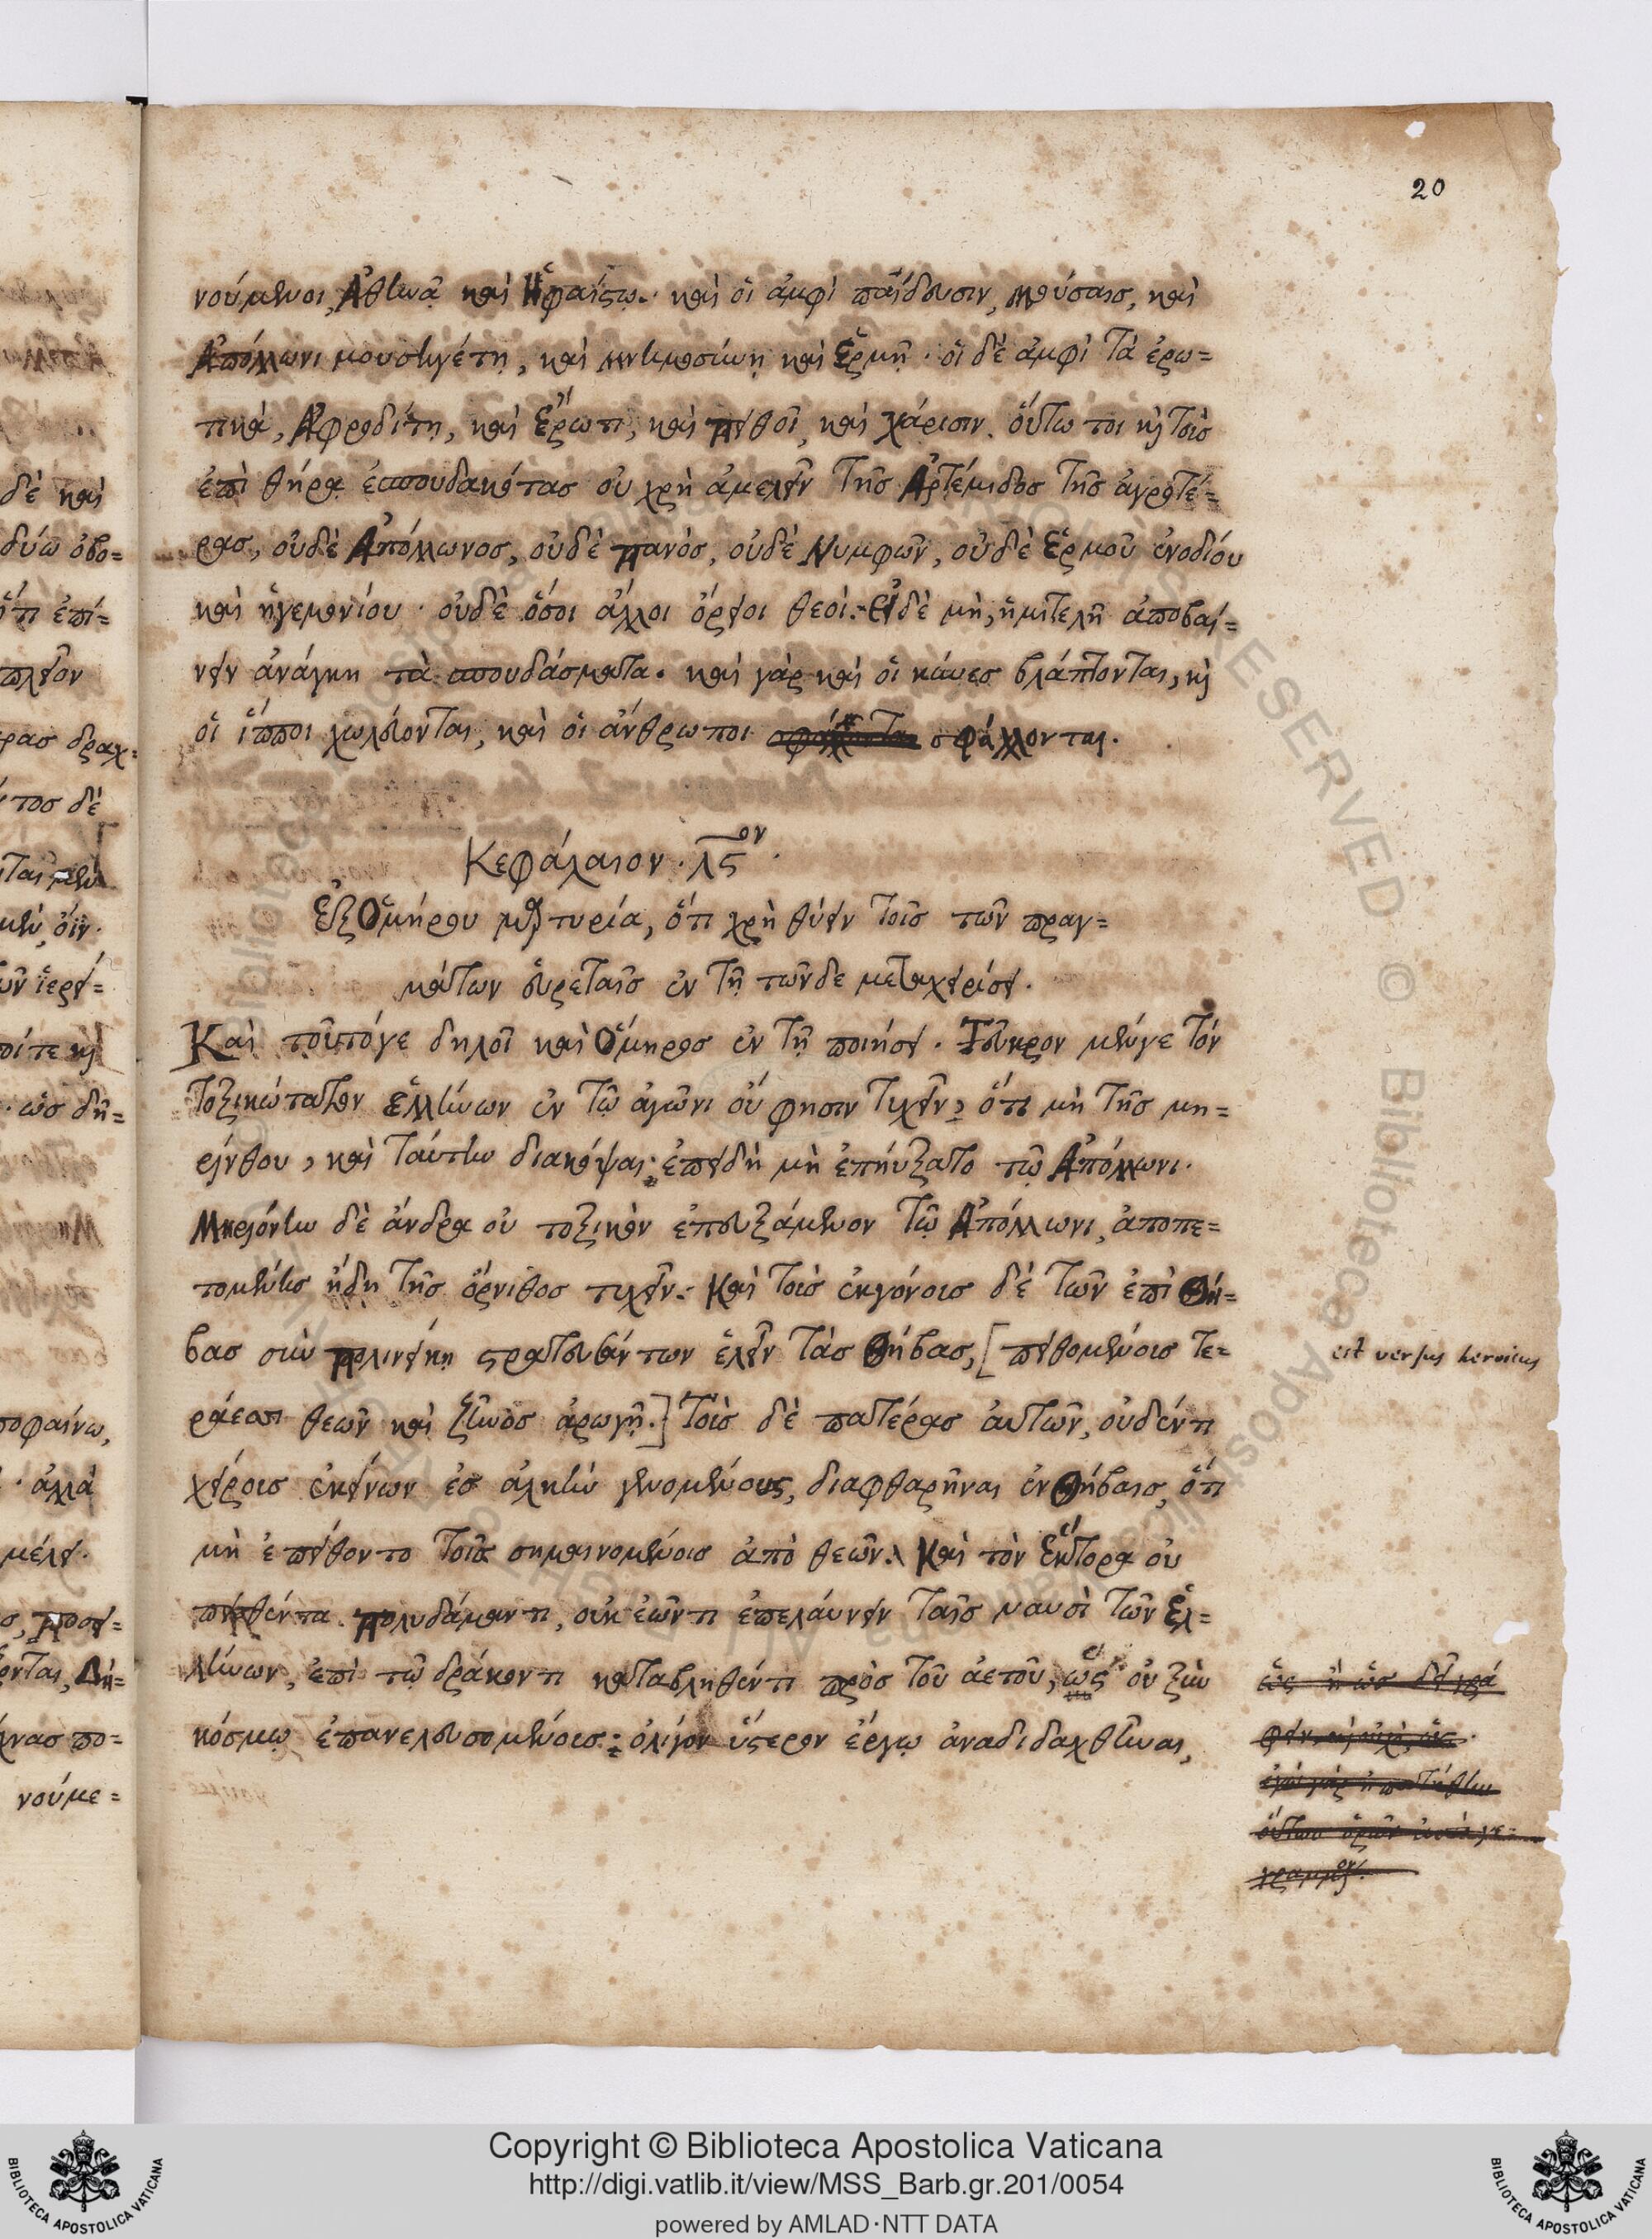 20
νούμενοι, Ἀθηνᾷ καὶ Ἡφαίστῳ· καὶ οἱ ἀμφὶ παίδευσιν, μούσαις, καὶ
Ἀπόλλωνι μουσηγέτῃ, καὶ μνημοσύνῃ καὶ Ἑρμῇ· οἱ δὲ ἀμφὶ τὰ ἐρω=
τικὰ, Ἀφροδίτῃ, καὶ Ἔρωτι, καὶ Πειθοῖ, καὶ χάρισιν. οὕτω τοι καὶ τοὺς
ἐπὶ θήρᾳ ἐσπουδακότας οὐ χρὴ ἀμελεῖν τῆς Ἀρτέμιδος τῆς ἀγροτέ=
ρας, οὐδὲ Ἀπόλλωνος, οὐδὲ Πανὸς, οὐδὲ Νυμφῶν, οὐδὲ Ἑρμοῦ ἐνοδίου
καὶ ἡγεμονίου· οὐδὲ ὅσοι ἄλλοι ὄρειοι θεοὶ. Εἰ δὲ μὴ, ἡμιτελῆ ἀποβαί=
νειν ἀνάγκη τὰ σπουδάσματα. καὶ γὰρ καὶ οἱ κύνες βλάπτονται, καὶ
οἱ ἵπποι χωλεύονται, καὶ οἱ ἄνθρωποι σφάλλονται.
Κεφάλαιον. λϛον.
Ἐξ Ὁμήρου μαρτυρία, ὅτι χρὴ θύειν τοῖς τῶν πραγ=
μάτων εὑρεταῖς ἐν τῇ τῶνδε μεταχειρίσει.
Καὶ τοῦτόγε δηλοῖ καὶ Ὅμηρος ἐν τῇ ποιήσει. Τεῦκρον μένγε τὸν
τοξικώτατον Ἑλλήνων ἐν τῷ ἀγῶνι οὔ φησιν τυχεῖν, ὅτι μὴ τῆς μη=
ρίνθου, καὶ ταύτην διακόψαι; ἐπειδὴ μὴ ἐπηύξατο τῷ Ἀπόλλωνι.
Μηριόνην δὲ ἄνδρα οὐ τοξικὸν ἐπευξάμενον τῷ Ἀπόλλωνι, ἀποπε=
τομένης ἤδη τῆς ὄρνιθος τυχεῖν. Καὶ τοὺς ἐκγόνοις δὲ τῶν ἐπὶ Θή=
βας σὺν Πολινείκῃ στρατευσάντων ἑλεῖν τὰς Θήβας, [πειθομένοις τε=
ράεσσι θεῶν καὶ Ζηνὸς ἀρωγῇ.] Τοὺς δὲ πατέρας αὐτῶν, οὐδέν τι
χείροις ἐκείνων ἐς ἀλκὴν γενομένους, διαφθαρῆναι ἐν Θήβαις, ὅτι
μὴ ἐπείθοντο τοῖς σημαινομένοις ἀπὸ θεῶν. Καὶ τὸν Ἕκτορα οὐ
πεισθέντα Πολυδάμαντι, οὐκ ἐῶντι ἐπελαύνειν ταῖς ναυσὶ τῶν Ἑλ=
λήνων, ἐπὶ τῷ δράκοντι καταβληθέντι πρὸς τοῦ ἀετοῦ, ὡς οὐ ξὺν
κόσμῳ ἐπανελευσομένοις; ὀλίγον ὕστερον ἔργῳ ἀναδιδαχθῆναι,
est versus heroicus
Copyright © Biblioteca Apostolica Vaticana
http://digi.vatlib.it/view/MSS_Barb.gr.201/0054
powered by AMLAD·NTT DATA
BIBLIOTECA APOSTOLICA VATICANA
BIBLIOTECA APOSTOLICA VATICANA